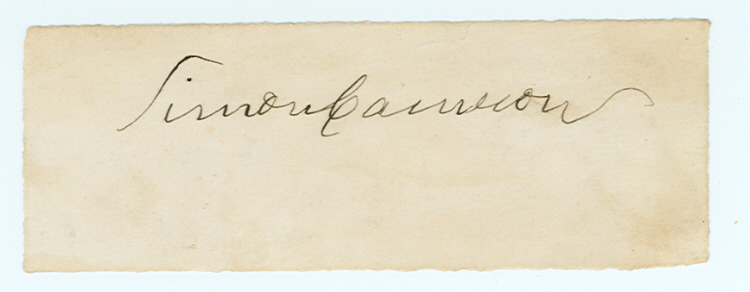 Simon Cameron